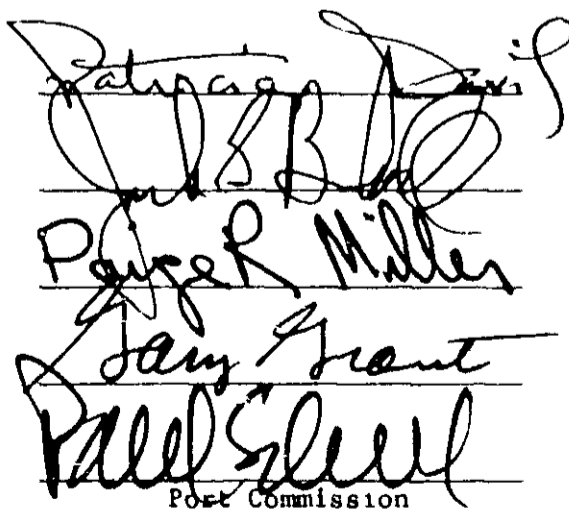 Patricia Davis
Jack S B
Paige R Miller
Gary Grant
Paul
Port Commission